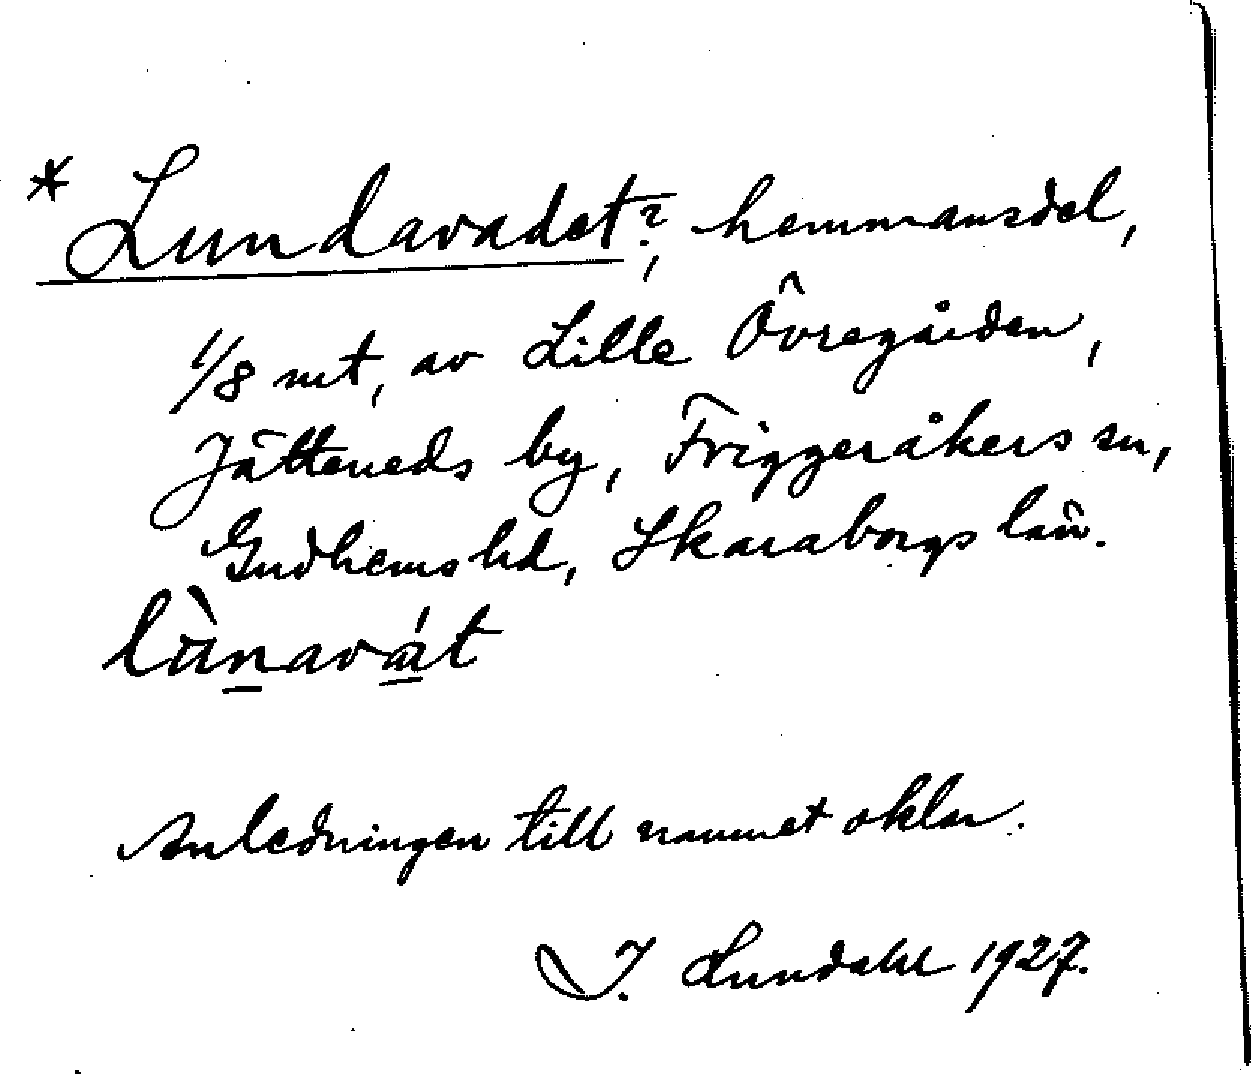 * Lundavadet?, hemmansdel,
1/8 mt, av Lille Övregården,
Jätteneds by, Friggeråkers sn,
Gudhems hd, Skaraborgs län.
lùnavát
Anledningen till namnet oklar.
I. Lundahl 1927.